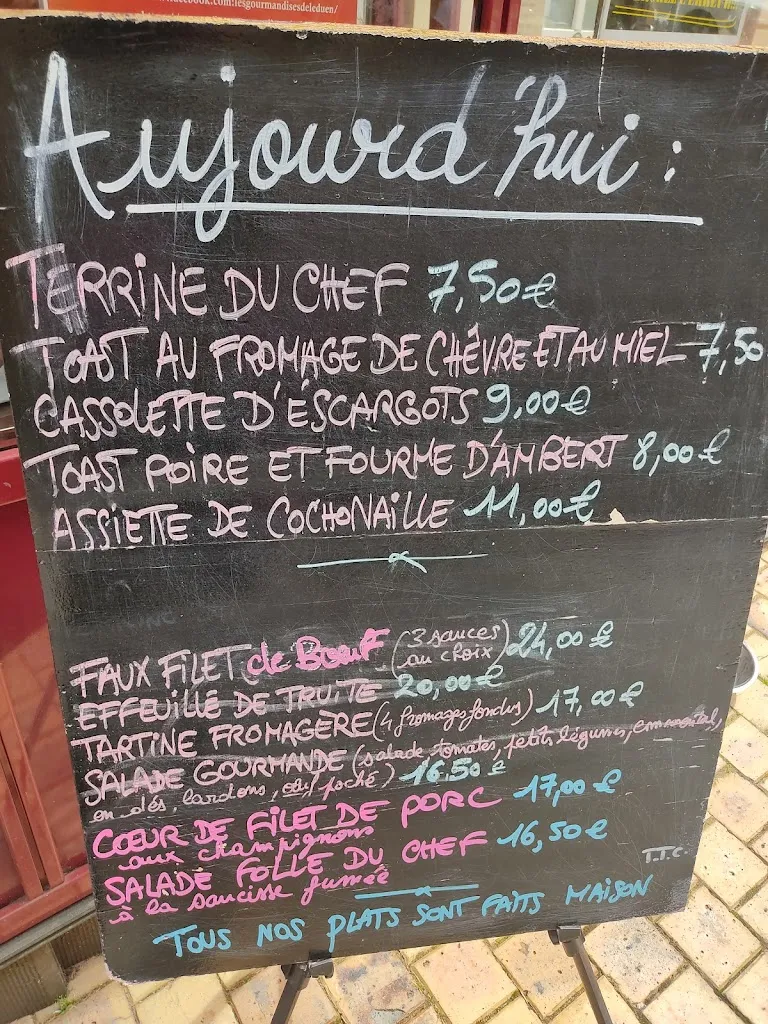 facebook.com:lesgourmandisesdeleduen/
Aujourd'hui :
TERRINE DU CHEF 7,50€
TOAST AU FROMAGE DE CHÊVRE ET AU MIEL 7,50
CASSOLETTE D'ÉSCARGOTS 9,00€
TOAST POIRE ET FOURME D'AMBERT 8,00€
ASSIETTE DE COCHONAILLE 11,00€
FAUX FILET de Bœuf (3 sauces au choix) 24,00€
EFFEUILLÉ DE TRUITE 20,00€
TARTINE FROMAGÈRE (4 fromages fondus) 17,00€
SALADE GOURMANDE (salade tomates, petits légumes, emmental,
en dés, lardons, œuf poché) 16,50€
CŒUR DE FILET DE PORC 17,00€
aux champignons
SALADE FOLLE DU CHEF 16,50€
à la saucisse fumée
T.T.C.
TOUS NOS PLATS SONT FAITS MAISON